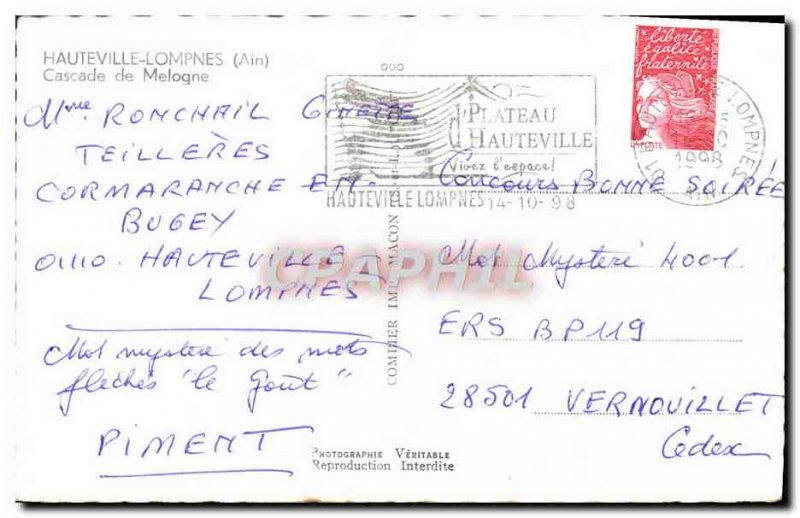 HAUTEVILLE-LOMPNES (Ain)
Cascade de Melogne
Mme RONCHAIL GINETTE
TEILLÈRES
CORMARANCHE EN.
BUGEY
01110. HAUTEVILLE
LOMPNES
Mot mystère des mots
fléchés "le goût"
PIMENT
PLATEAU
d'HAUTEVILLE
Vivez l'espace!
HAUTEVILLE LOMPNES 14-10-98
liberté
égalité
fraternité
LA POSTE
LOMPNES
1998
01
AIN
Concours BONNE SOIRÉE
Mot Mystère 4001
ERS BP119
28501 VERNOUILLET
Cedex
COMBIER IMP. MACON
CPAPHIL
PHOTOGRAPHIE VÉRITABLE
Reproduction Interdite